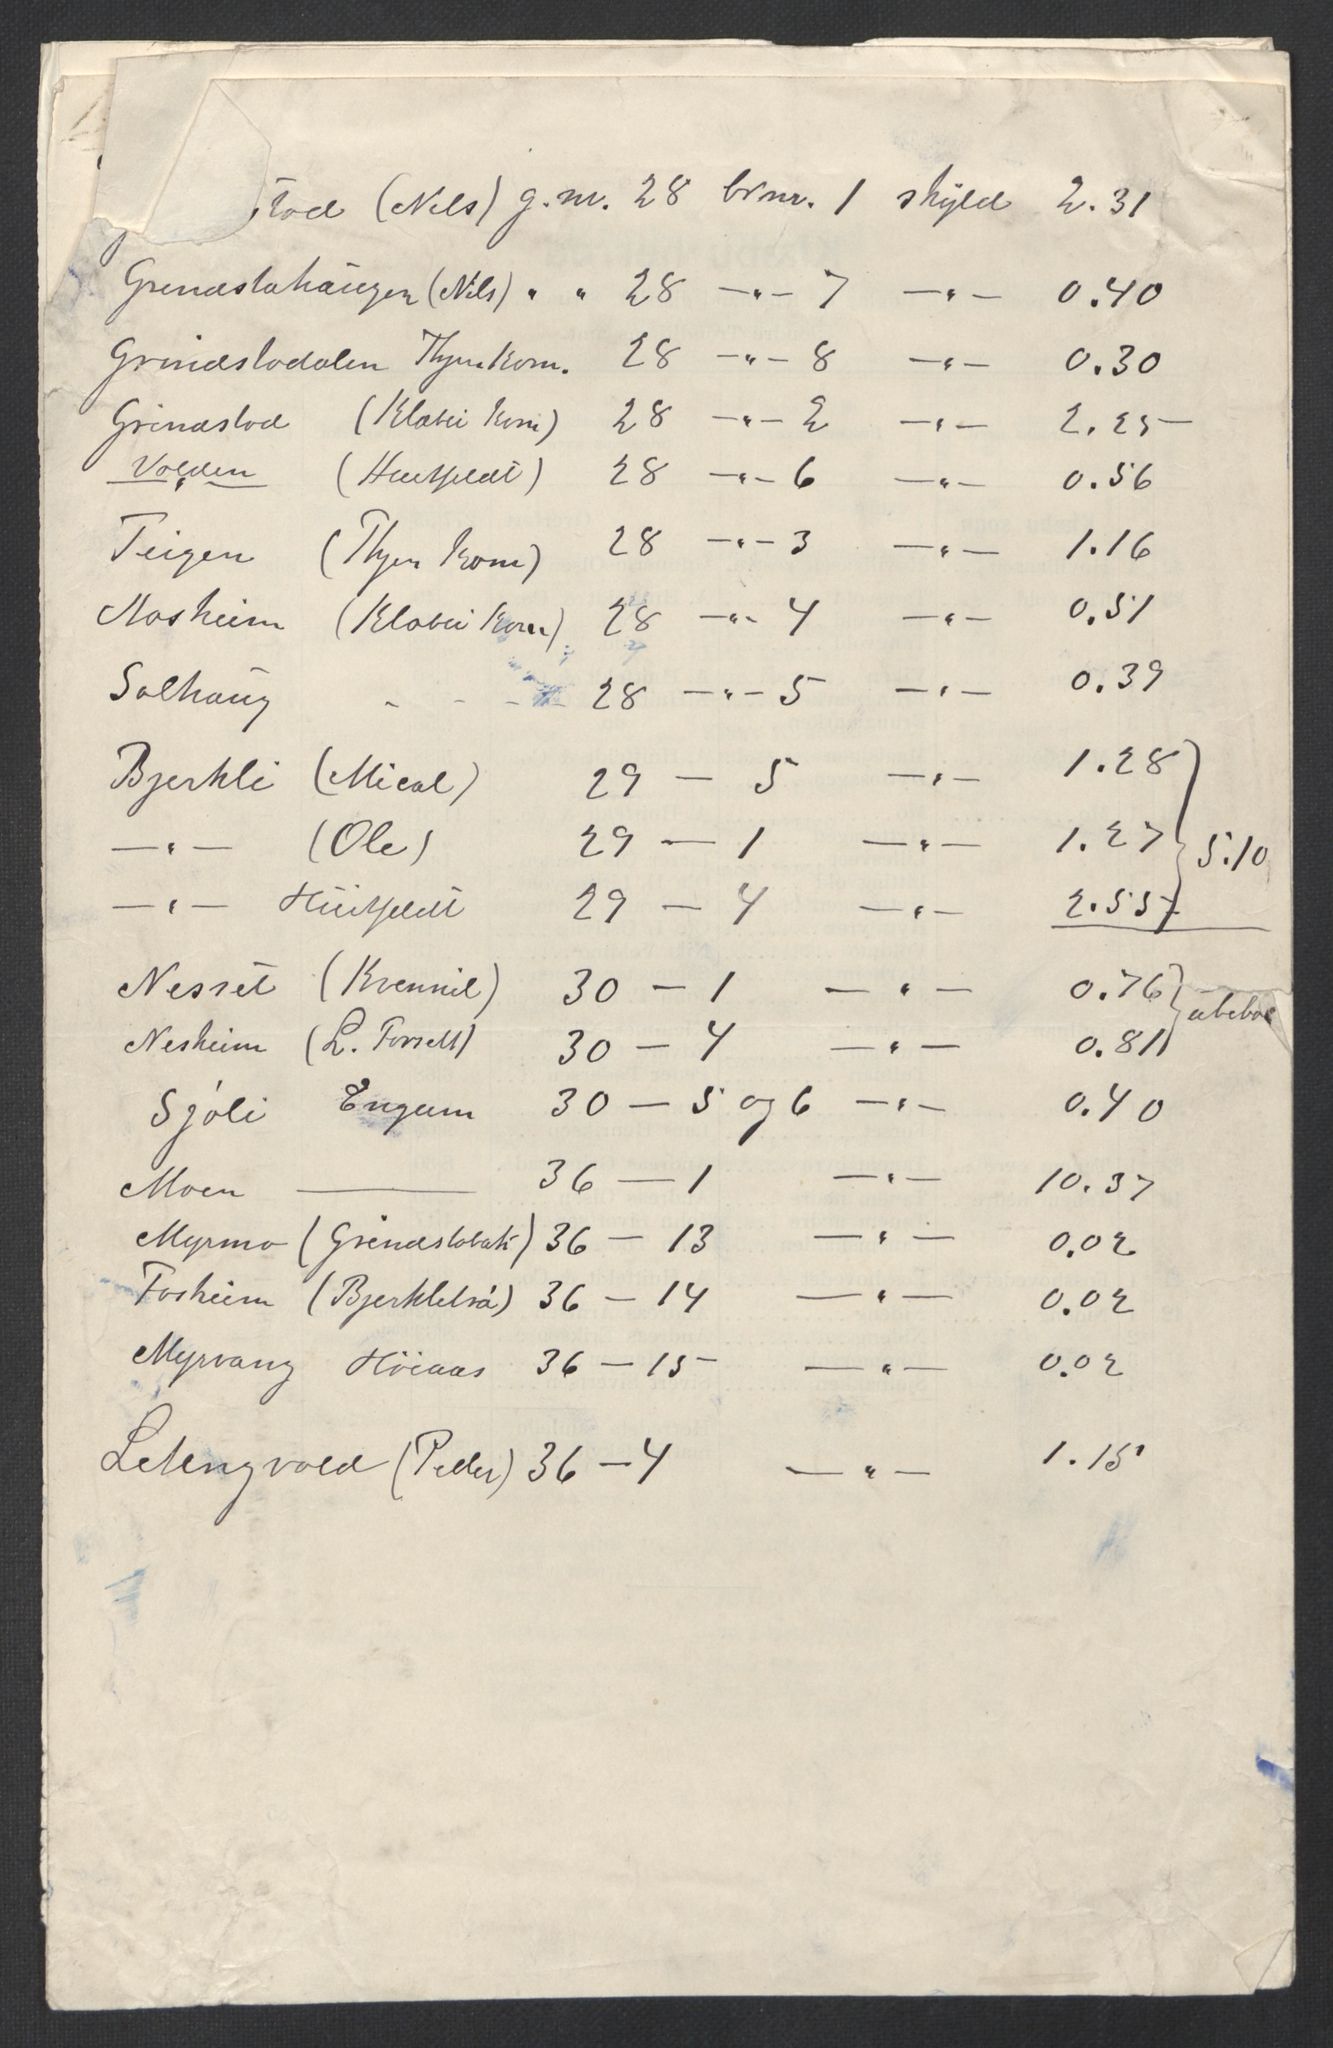 stad (Nils) g.nr. 28 brnr. 1 skyld 2.31
Grendstahaugen (Nils) " " 28 —"— 7 —"— 0.40
Grindstadalen Thyen kom. 28 —"— 8 —"— 0.30
Grindstad (Klæbu kom) 28 —"— 2 —"— 2.25
Volden (Huitfeldt) 28 —"— 6 —"— 0.56
Teigen (Thyen kom) 28 —"— 3 —"— 1.16
Mosheim (Klæbu kom) 28 —"— 4 —"— 0.51
Solhaug - - - 28 —"— 5 —"— 0.39
Bjerkli (Mical) 29 — 5 —"— 1.28
—"— (Ole) 29 — 1 —"— 1.27 5.10
—"— Huitfeldt 29 — 4 —"— 2.55
Nesset (Kvennil) 30 — 1 —"— 0.76
Nesheim (L. Forsett) 30 — 4 —"— 0.81
Sjöli Engum 30 — 5 og 6 —"— 0.40
Moen — 36 — 1 —"— 10.37
Myrmo (Grindstabak) 36 — 13 —"— 0.02
Fosheim (Bjerkletrå) 36 — 14 —"— 0.02
Myrvang Höiaas 36 — 15 —"— 0.02
Letengvold (Peder) 36 — 4 —"— 1.15